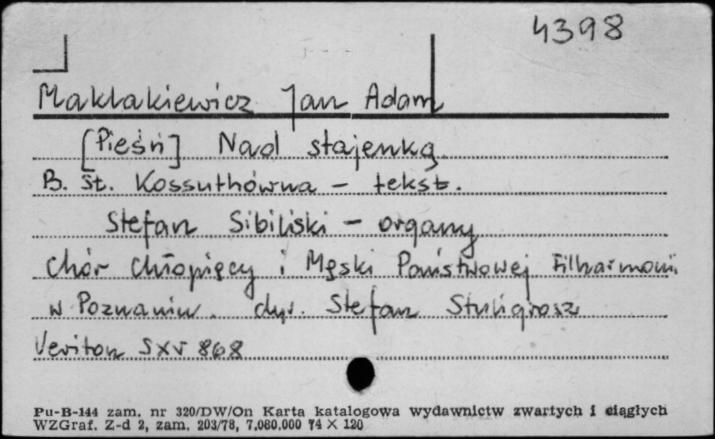 4398
Maklakiewicz Jan Adam
[Pieśń] Nad stajenką
B. St. Kossuthówna – tekst.
Stefan Sibilski – organy
Chór Chłopięcy i Męski Państwowej Filharmonii
w Poznaniu. dyr. Stefan Stuligrosz
Veriton SXV 868
Pu-B-144 zam. nr 320/DW/On Karta katalogowa wydawnictw zwartych i ciągłych
WZGraf. Z-d 2, zam. 203/78, 7,060,000 74 × 120